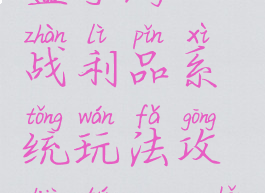 zhàn lì pǐn xì
战利品系
tǒng wán fǎ gōng
统玩法攻